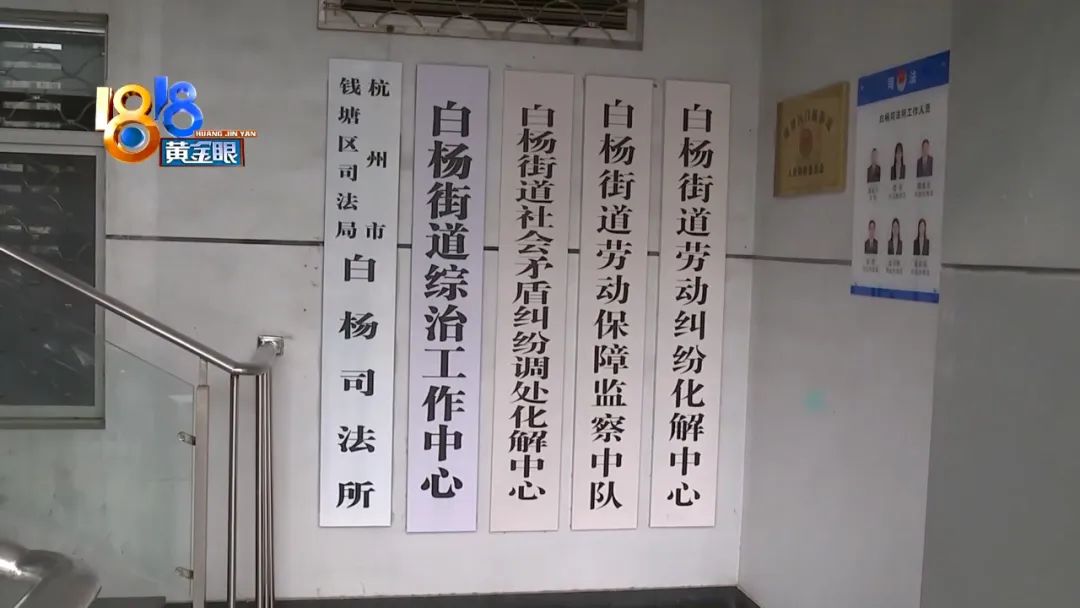 1818
HUANG JIN YAN
黄金眼
杭州市
钱塘区司法局
白杨司法所
白杨街道综治工作中心
白杨街道社会矛盾纠纷调处化解中心
白杨街道劳动保障监察中队
白杨街道劳动纠纷化解中心
人民调解委员会
司法
白杨司法所工作人员